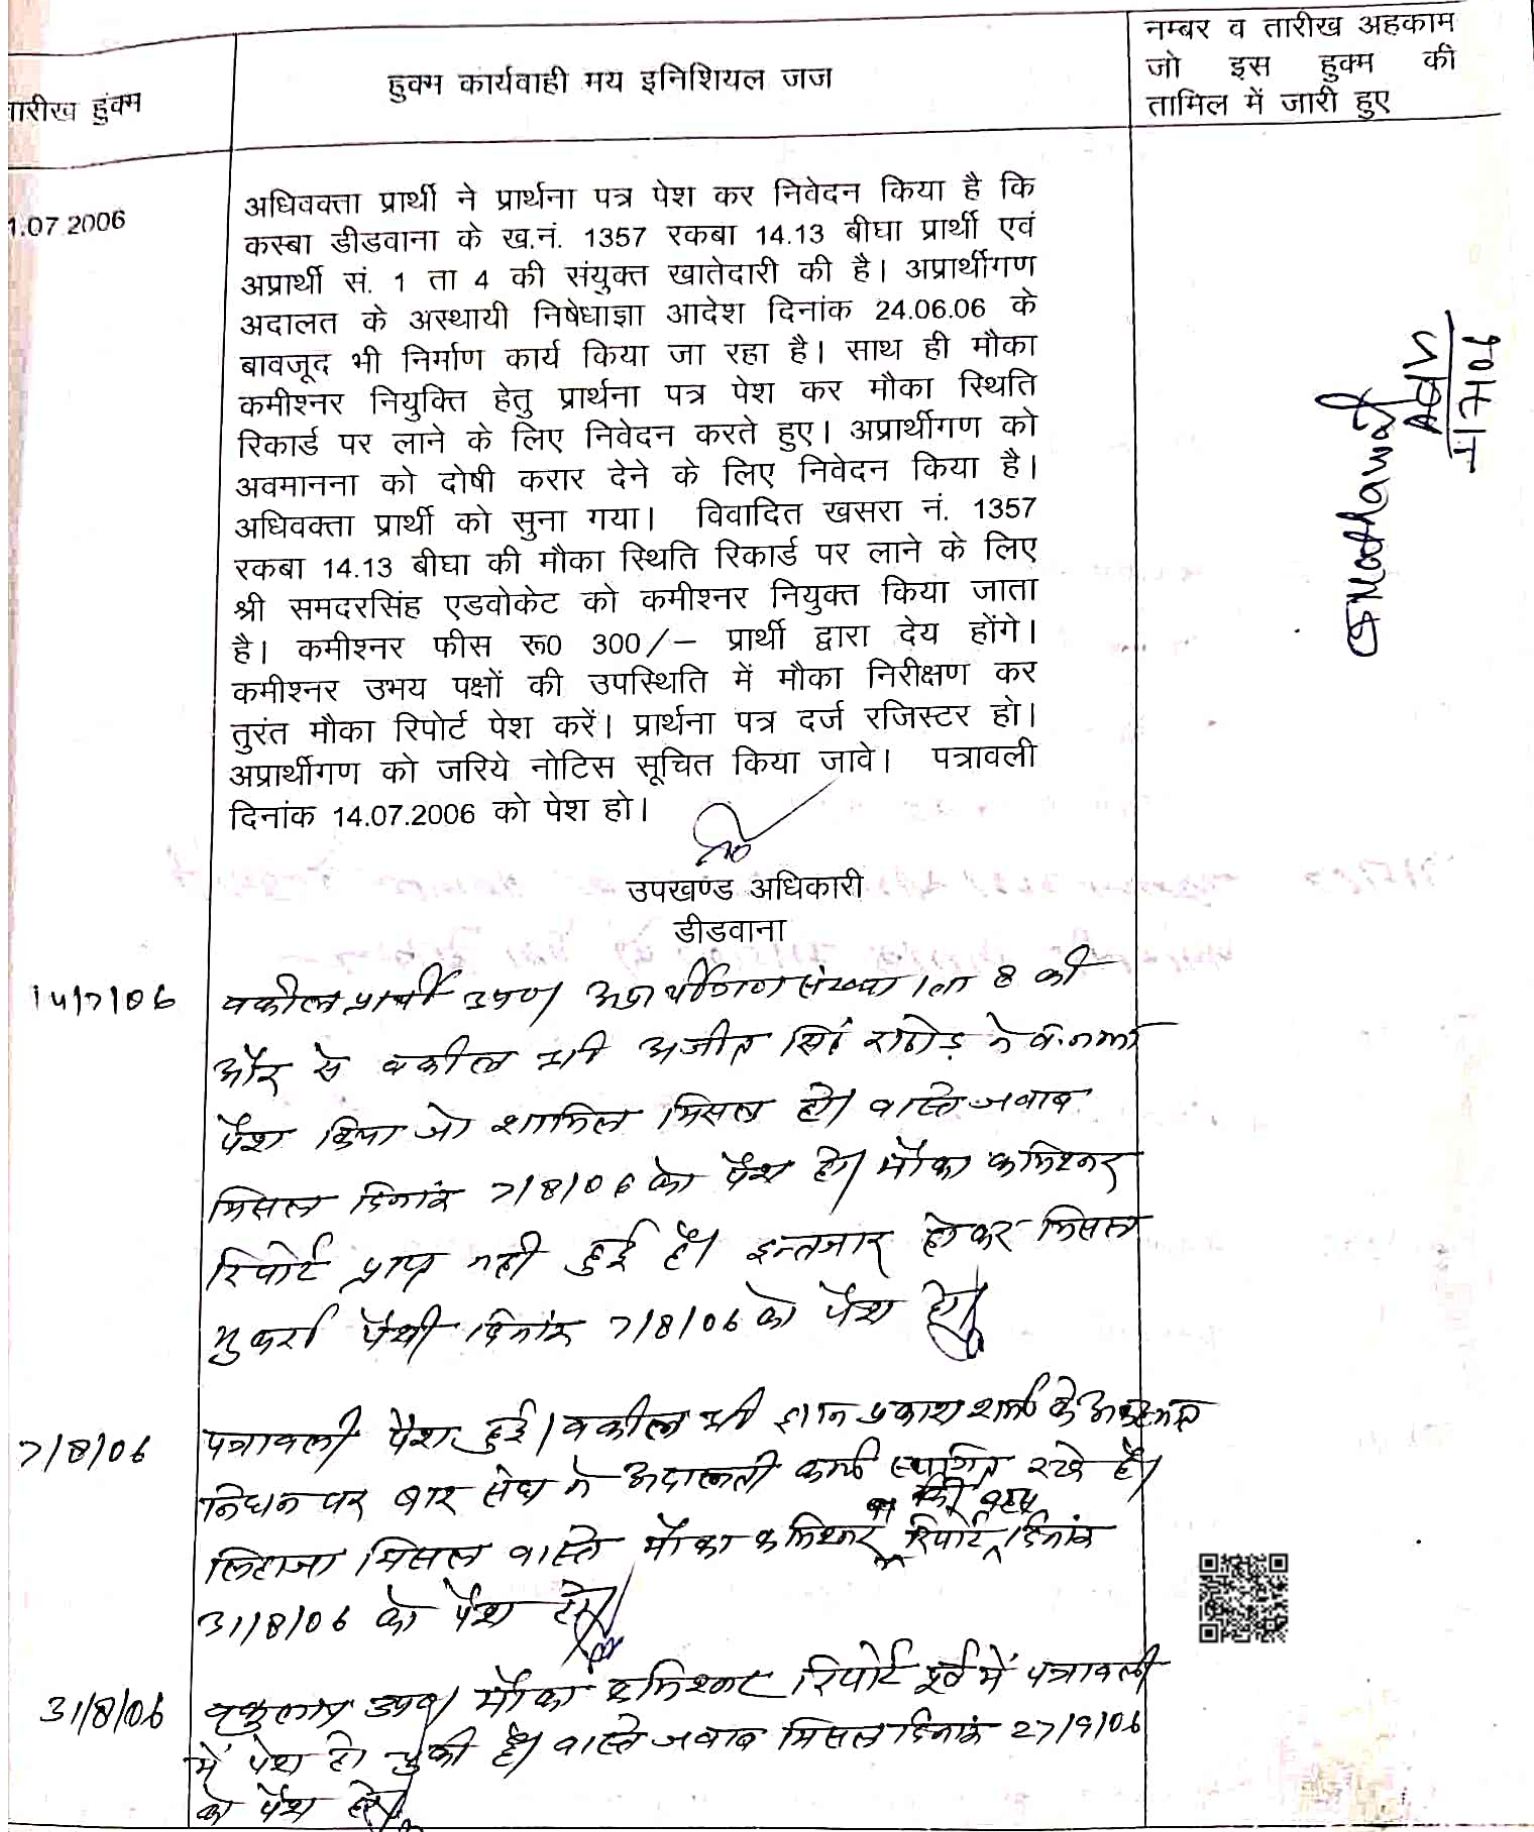 तारीख हुक्म
हुक्म कार्यवाही मय इनिशियल जज
नम्बर व तारीख अहकाम
जो इस हुक्म की
तामिल में जारी हुए
1.07.2006
अधिवक्ता प्रार्थी ने प्रार्थना पत्र पेश कर निवेदन किया है कि
कस्बा डीडवाना के ख.नं. 1357 रकबा 14.13 बीघा प्रार्थी एवं
अप्रार्थी सं. 1 ता 4 की संयुक्त खातेदारी की है। अप्रार्थीगण
अदालत के अस्थायी निषेधाज्ञा आदेश दिनांक 24.06.06 के
बावजूद भी निर्माण कार्य किया जा रहा है। साथ ही मौका
कमीश्नर नियुक्ति हेतु प्रार्थना पत्र पेश कर मौका स्थिति
रिकार्ड पर लाने के लिए निवेदन करते हुए। अप्रार्थीगण को
अवमानना को दोषी करार देने के लिए निवेदन किया है।
अधिवक्ता प्रार्थी को सुना गया। विवादित खसरा नं. 1357
रकबा 14.13 बीघा की मौका स्थिति रिकार्ड पर लाने के लिए
श्री समदरसिंह एडवोकेट को कमीश्नर नियुक्त किया जाता
है। कमीश्नर फीस रू0 300/– प्रार्थी द्वारा देय होंगे।
कमीश्नर उभय पक्षों की उपस्थिति में मौका निरीक्षण कर
तुरंत मौका रिपोर्ट पेश करें। प्रार्थना पत्र दर्ज रजिस्टर हो।
अप्रार्थीगण को जरिये नोटिस सूचित किया जावे। पत्रावली
दिनांक 14.07.2006 को पेश हो।
उपखण्ड अधिकारी
डीडवाना
14/7/06
वकील प्रार्थी उप0। अप्रार्थीगण संख्या 1 ता 8 की
और से वकील श्री अजीत सिंह राठोड़ ने व.नामा
पेश किया जो शामिल मिसल हो। वास्ते जवाब
मिसल दिनांक 7/8/06 को पेश हो। मौका कमिश्नर
रिपोर्ट प्राप्त नही हुई है। इन्तजार होकर मिसल
मुकर्रा पेशी दिनांक 7/8/06 को पेश हो।
7/8/06
पत्रावली पेश हुई। वकील श्री ज्ञान प्रकाश शर्मा के
निधन पर बार संघ ने अदालती कार्य स्थगित रखे है।
लिहाजा मिसल वास्ते मौका कमिश्नर की रिपोर्ट दिनांक
31/8/06 को पेश हो।
31/8/06
वकुलाय उप0। मौका कमिश्नर रिपोर्ट पूर्व में पत्रावली
में पेश हो चुकी है। वास्ते जवाब मिसल दिनांक 27/9/06
को पेश हो।